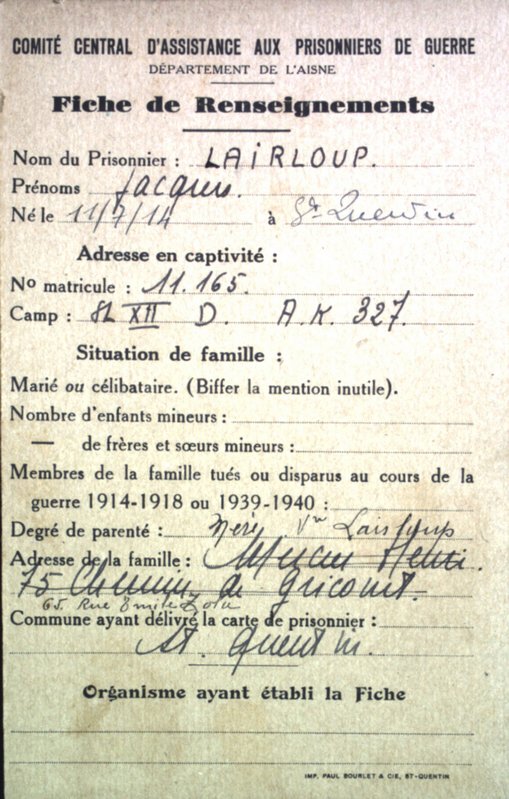 COMITÉ CENTRAL D'ASSISTANCE AUX PRISONNIERS DE GUERRE
DÉPARTEMENT DE L'AISNE
Fiche de Renseignements
Nom du Prisonnier : LAIRLOUP.
Prénoms Jacques.
Né le 11/7/14 à St Quentin
Adresse en captivité :
No matricule : 11.165.
Camp : XII D. A.K. 327.
Situation de famille :
Marié ou célibataire. (Biffer la mention inutile).
Nombre d'enfants mineurs :
— de frères et sœurs mineurs :
Membres de la famille tués ou disparus au cours de la
guerre 1914-1918 ou 1939-1940 :
Degré de parenté : Mère Vve Lairloup
Adresse de la famille :
75 Chemin de Gricourt.
65. Rue Emile Zola
Commune ayant délivré la carte de prisonnier :
St. Quentin.
Organisme ayant établi la Fiche
IMP. PAUL BOURLET & CIE, ST-QUENTIN